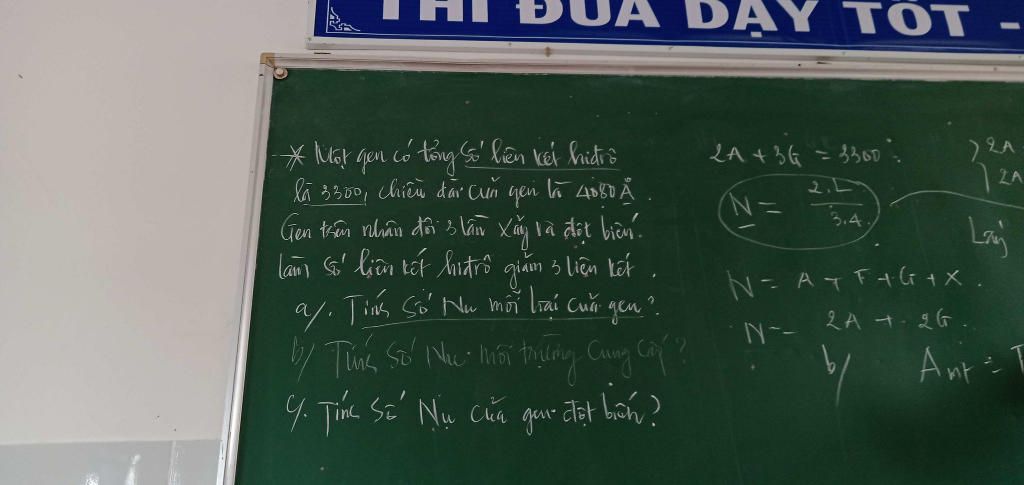 THI ĐUA DẠY TỐT -
* Một gen có tổng số liên kết hiđrô
là 3300, chiều dài của gen là 4080Å.
Gen trên nhân đôi 3 lần xảy ra đột biến.
làm số liên kết hiđrô giảm 3 liên kết.
a/. Tính số Nu mỗi loại của gen?
b/ Tính số Nu môi trường cung cấp?
c/. Tính số Nu của gen đột biến?
2A + 3G = 3300.
N = 2.L / 3,4.
N = A + T + G + X.
N = 2A + 2G.
b/ Amt =
2A
2A
Lấy